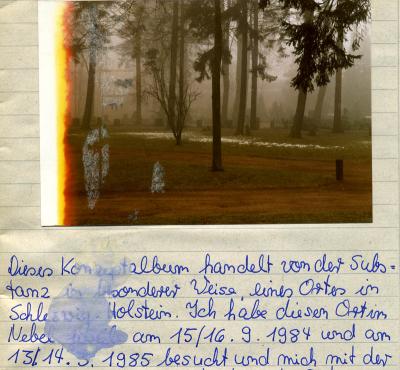 Dieses Konzeptalbum handelt von der Subs-
tanz in besonderer Weise, eines Ortes in
Schleswig-Holstein. Ich habe diesen Ort im
Nebel am 15/16. 9. 1984 und am
13/14. 3. 1985 besucht und mich mit der